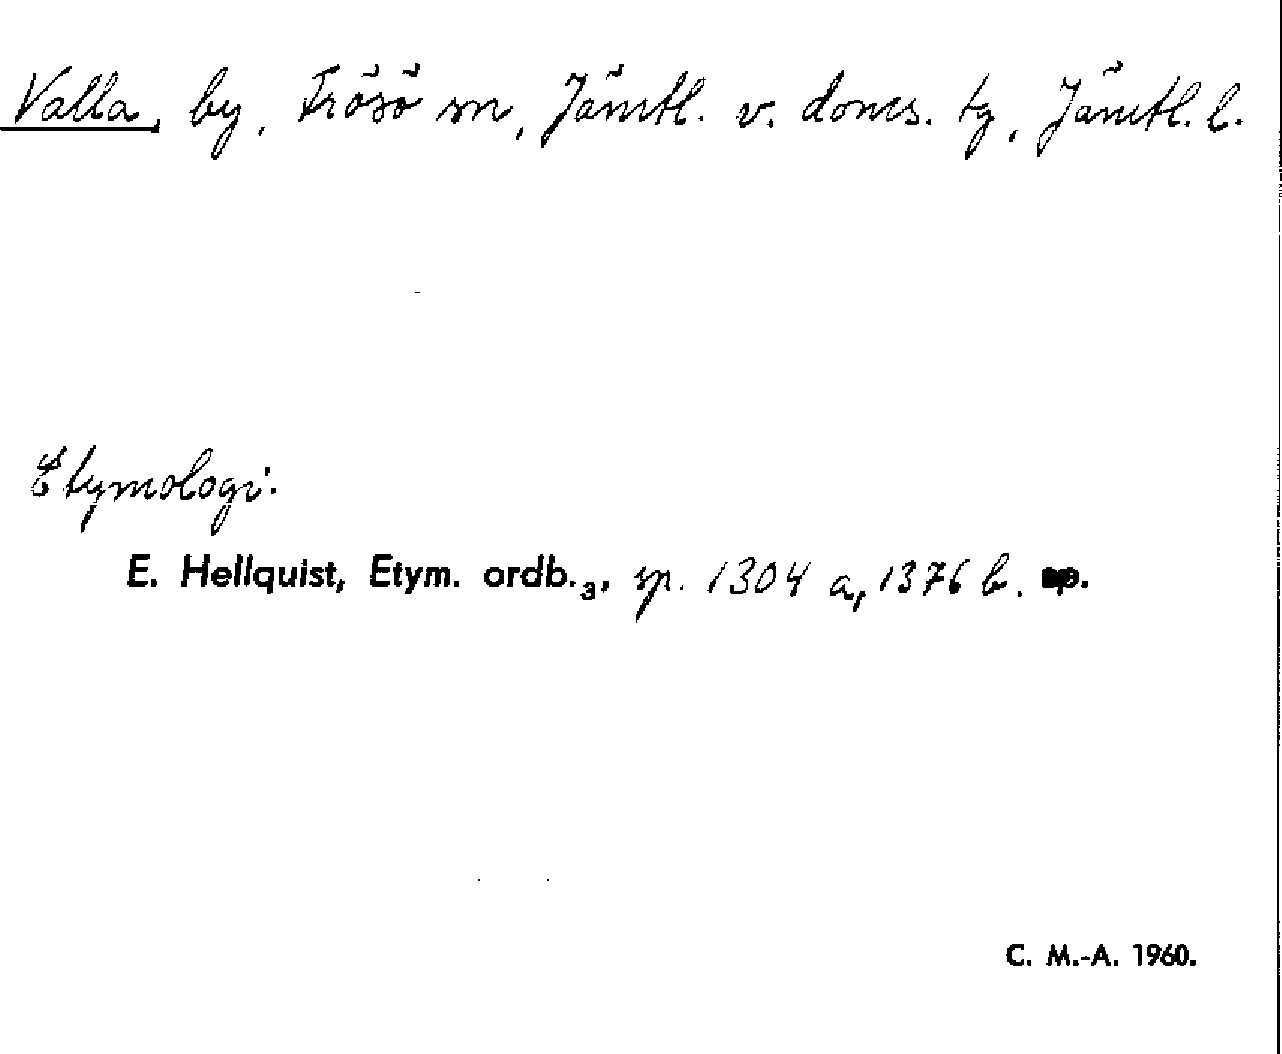 Valla, by, Frösö sn, Jämtl. v. doms. tg, Jämtl. l.
Etymologi:
E. Hellquist, Etym. ordb.₃, sp. 1304 a, 1376 b.
C. M.-A. 1960.